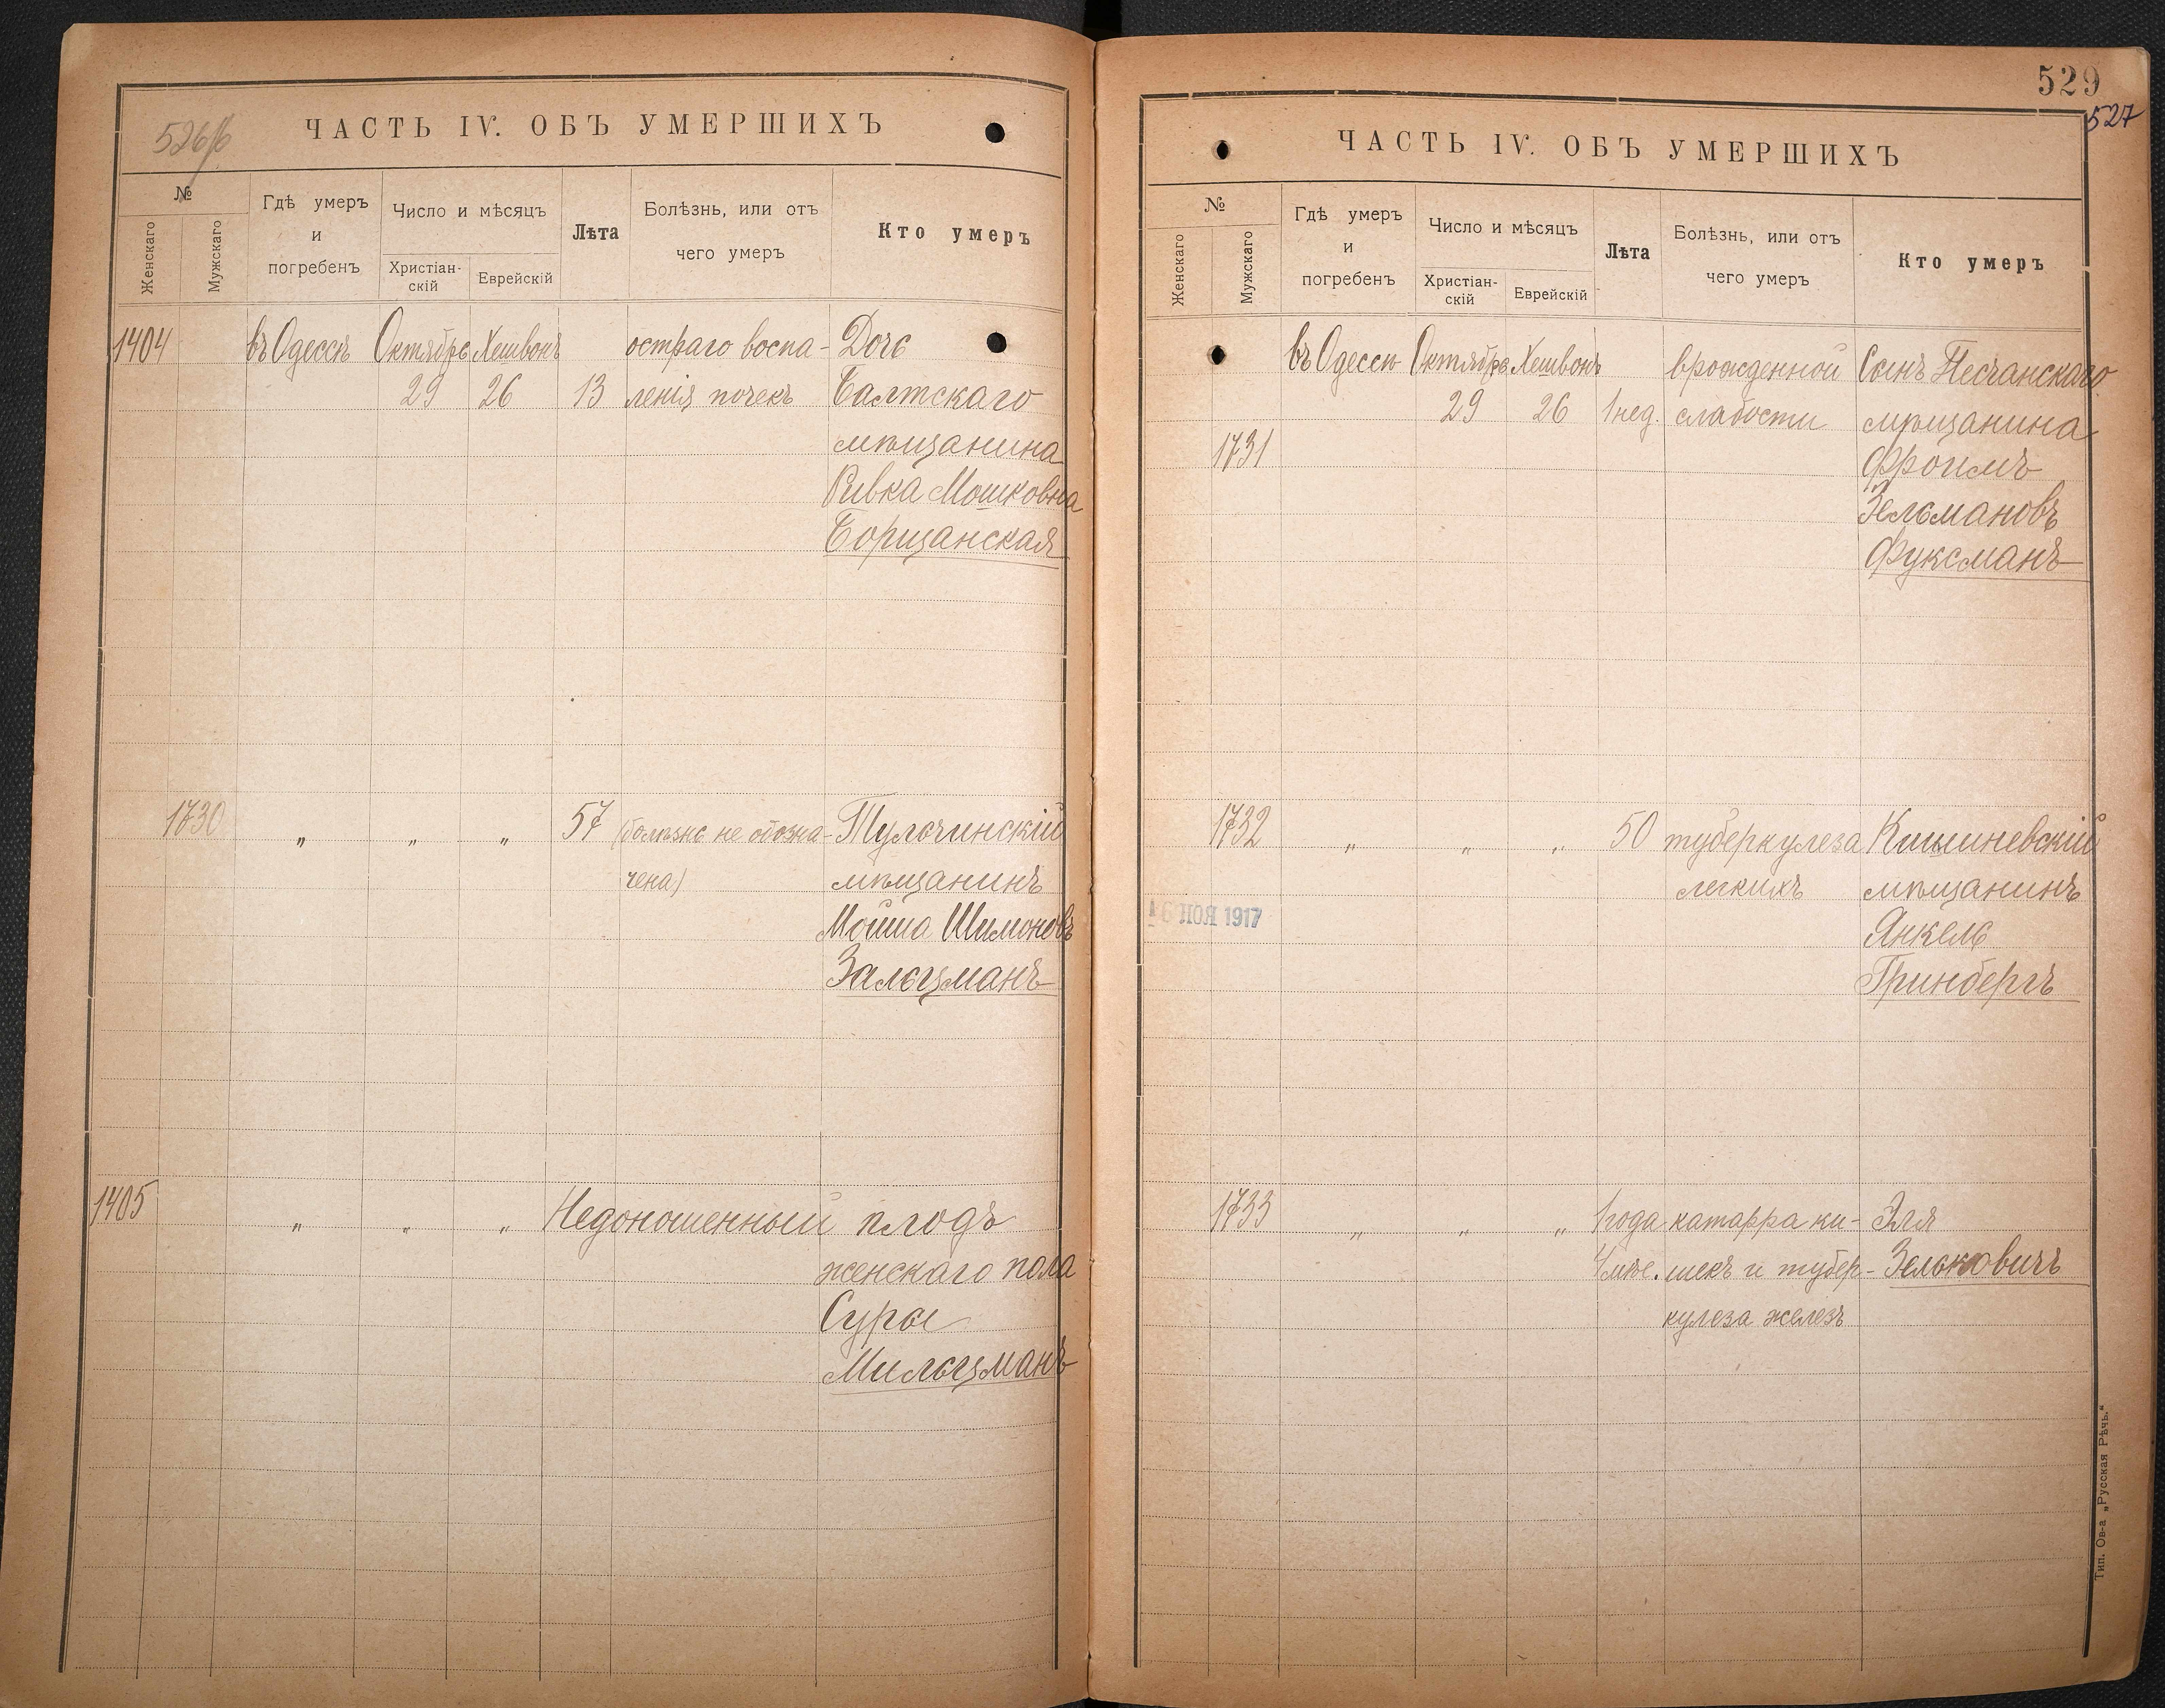 526/б
ЧАСТЬ IV. ОБЪ УМЕРШИХЪ
№
Женскаго
Мужскаго
Гдѣ умеръ
и
погребенъ
Число и мѣсяцъ
Христіан-
скій
Еврейскій
Лѣта
Болѣзнь, или отъ
чего умеръ
Кто умеръ
1404 въ Одессѣ Октябрь Хешвонъ остраго воспа- Дочь
29 26 13 ленія почекъ Балтскаго
мѣщанина
Ривка Мошковна
Борщанская
1730 " " " 57 (болѣзнь не обозна- Тульчинскій
чена) мѣщанинъ
Мойша Шимоновъ
Зальцманъ
1405 " " " Недоношенный плодъ
женскаго пола
Суры
Мильцманъ
529
527
ЧАСТЬ IV. ОБЪ УМЕРШИХЪ
№
Женскаго
Мужскаго
Гдѣ умеръ
и
погребенъ
Число и мѣсяцъ
Христіан-
скій
Еврейскій
Лѣта
Болѣзнь, или отъ
чего умеръ
Кто умеръ
въ Одессѣ Октябрь Хешвонъ врожденной Сынъ Песчанскаго
29 26 1 нед. слабости мѣщанина
1731 Фроимъ
Зельмановъ
Фуксманъ
1732 " " " 50 туберкулеза Кишиневскій
легкихъ мѣщанинъ
16 НОЯ 1917 Янкель
Гринбергъ
1733 " " " 1 года катарра ки- Эля
4 мѣс. шекъ и тубер- Зельковичъ
кулеза железъ
Тип. Ов-а „Русская Рѣчь."